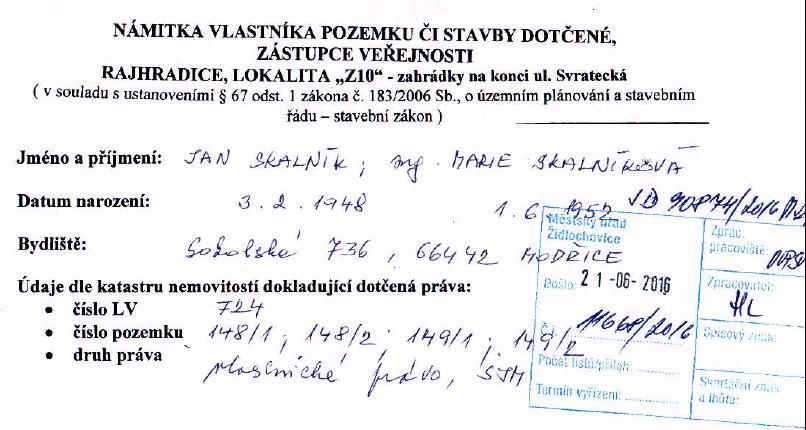 NÁMITKA VLASTNÍKA POZEMKU ČI STAVBY DOTČENÉ,
ZÁSTUPCE VEŘEJNOSTI
RAJHRADICE, LOKALITA „Z10“ - zahrádky na konci ul. Svratecká
( v souladu s ustanoveními § 67 odst. 1 zákona č. 183/2006 Sb., o územním plánování a stavebním
řádu – stavební zákon )
Jméno a příjmení: JAN SKALNÍK, ing. MARIE SKALNÍKOVÁ
Datum narození: 3. 2. 1948 1. 6. 1952
Bydliště: Sokolská 736, 66442 MODŘICE
Údaje dle katastru nemovitostí dokladující dotčená práva:
• číslo LV 724
• číslo pozemku 148/1, 148/2, 149/1, 149/2
• druh práva vlastnické právo, SJM
Městský úřad
Židlochovice
Došlo: 21 -06- 2016
Č.j.
Počet listů/příloh:
Termín vyřízení:
Zprac.
pracoviště:
Zpracovatel:
HL
Spisový znak:
Skartační znak
a lhůta: